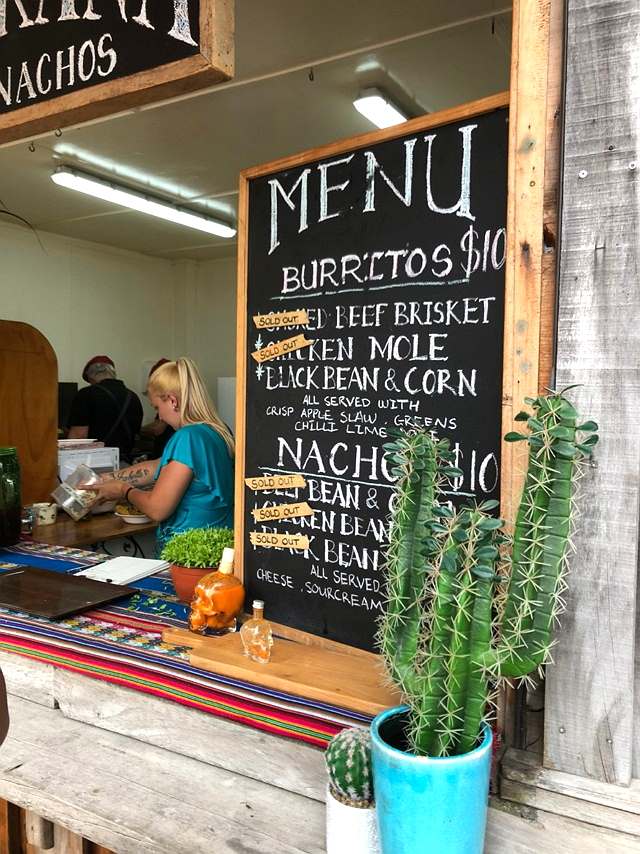 NACHOS
MENU
BURRITOS $10
SOLD OUT
BEEF BRISKET
SOLD OUT
CHICKEN MOLE
*BLACK BEAN & CORN
ALL SERVED WITH
CRISP APPLE SLAW . GREENS
CHILLI LIME
NACHO $10
SOLD OUT
BEEF BEAN &
SOLD OUT
CHICKEN BEAN
SOLD OUT
BLACK BEAN
ALL SERVED
CHEESE . SOURCREAM